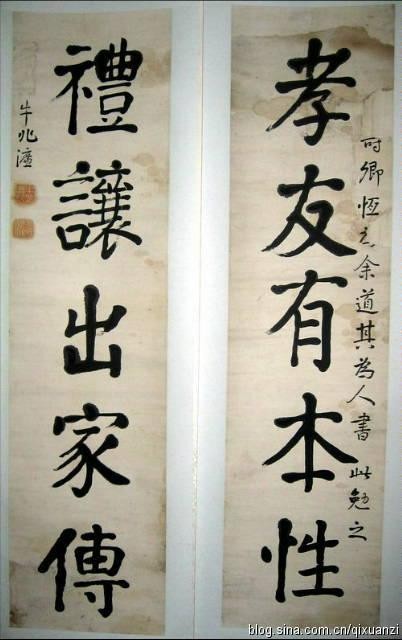 孝友有本性
时卿恆之余道其為人書此勉之
禮讓出家傳
牛兆濂
blog.sina.com.cn/qixuanzi